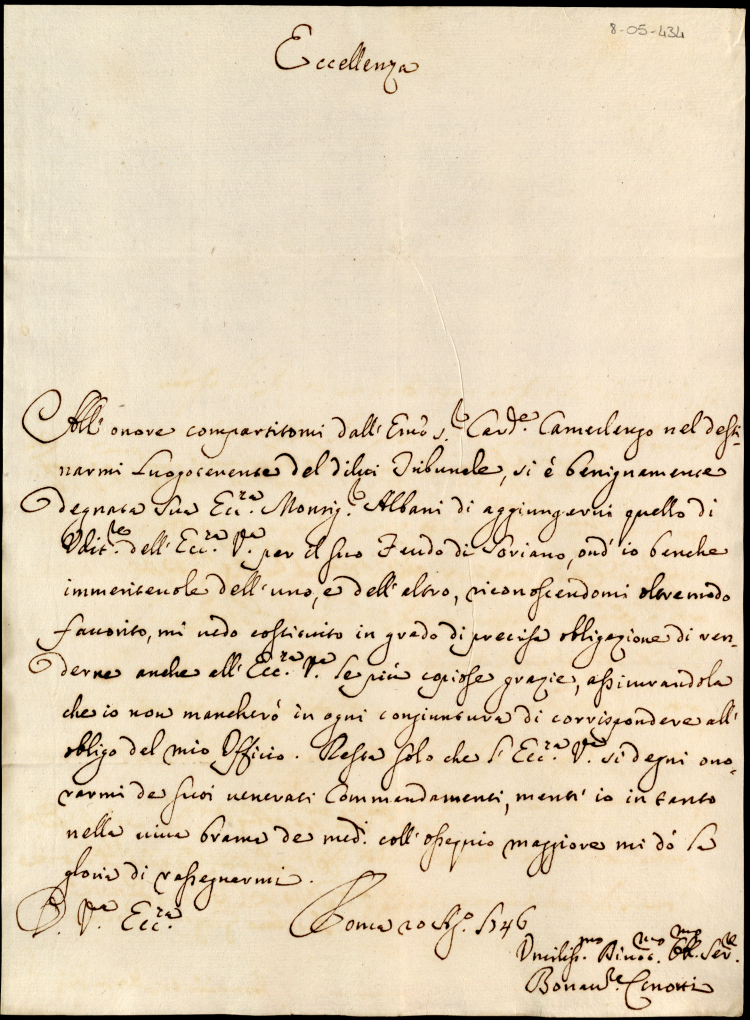 8-05-434
Eccellenza
All' onore compartitomi dall' Em̃o S.r Card.le Camerlengo nel desti-
narmi Luogotenente del di lui Tribunale, si è benignamente
degnata Sua Ecc.za Monsig.r Albani di aggiungervi quello di
Udit.re dell' Ecc.za V.ra per il suo Feudo di Soriano, ond' io benche
immeritevole dell' uno, e dell' altro, riconoscendomi oltremodo
favorito, mi vedo costituito in grado di precisa obligazione di ren-
derne anche all' Ecc.za V.ra le più copiose grazie, assicurandola
che io non mancherò in ogni congiuntura di corrispondere all'
obligo del mio Officio. Resta solo che l' Ecc.za V.ra si degni ono-
rarmi de suoi venerati Commandamenti, mentr' io in tanto
nella viva brama de med.i coll' ossequio maggiore mi dò la
gloria di rassegnarmi.
D. V.ra Ecc.za Roma 20 Ag.o 1746
Umiliss.mo Divot.mo Obl.mo Ser.re
Bonav.ra